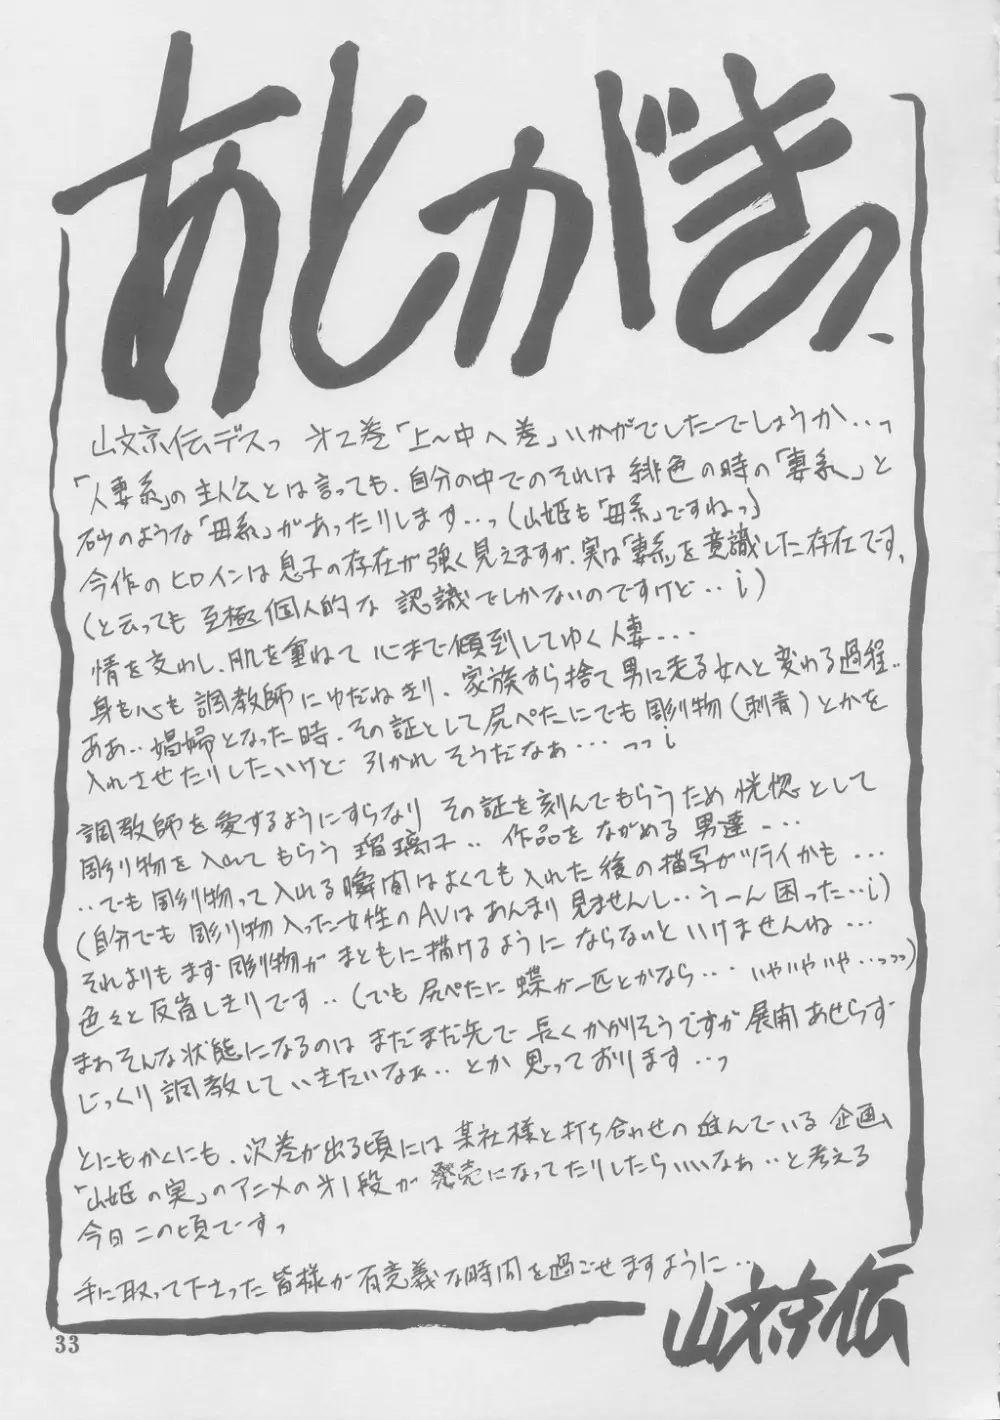 あとがきっ、
山文京伝デスっ 才2巻「上〜中へ巻」いかがでしたでしょうか…っ
「人妻系」の主人公とは言っても、自分の中でのそれは緋色の時の「妻系」と
砂のような「母系」があったりします…っ(山姫も「母系」ですねっ)
今作のヒロインは息子の存在が強く見えますが、実は「妻系」を意識した存在です、
(と云っても至極個人的な認識でしかないのですけど…i)
情を交わし、肌を重ねて心まで傾倒してゆく人妻…
身も心も調教師にゆだねきり、家族すら捨て男に走る女へと変わる過程..
ああ..娼婦となった時、その証として尻ぺたにでも彫り物(刺青)とかを
入れさせたりしたいけど引かれそうだなぁ…っっi
調教師を愛するようにすらなり その証を刻んでもらうため恍惚として
彫り物を入れてもらう瑠璃子.. 作品をながめる男達…
..でも彫り物って入れる瞬間はよくても入れた後の描写がツライかも…
(自分でも彫り物入った女性のAVはあんまり見ませんし..うーん困った…i)
それよりもまず彫り物がまともに描けるようにならないといけませんね…
色々と反省しきりです..(でも尻ぺたに蝶が一匹とかなら… いやいやいや..っっっ)
まぁそんな状態になるのはまだまだ先で長くかかりそうですが展開あせらず
じっくり調教していきたいなぁ..とか思っております…っ
とにもかくにも、次巻が出る頃には某社様と打ち合わせの進んでいる企画、
「山姫の実」のアニメの才1段が発売になってたりしたらいいなぁ..と考える
今日この頃ですっ
手に取って下さった皆様が有意義な時間を過ごせますように…
山文京伝
33